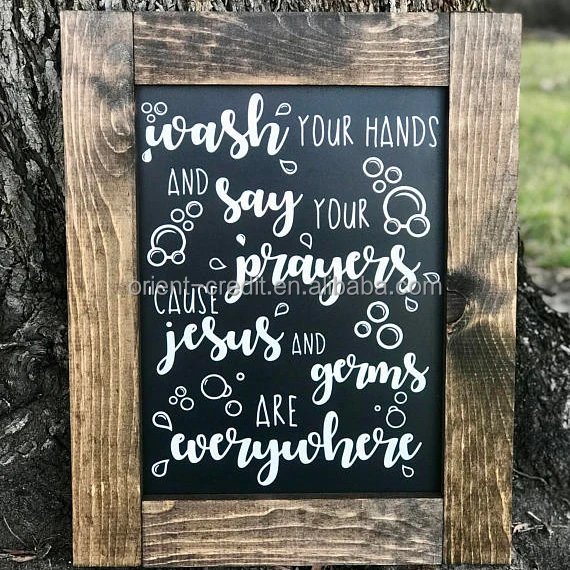 wash YOUR HANDS
AND say YOUR
prayers
orient-cradit.en.alibaba.com
'CAUSE
jesus AND
germs
ARE
everywhere